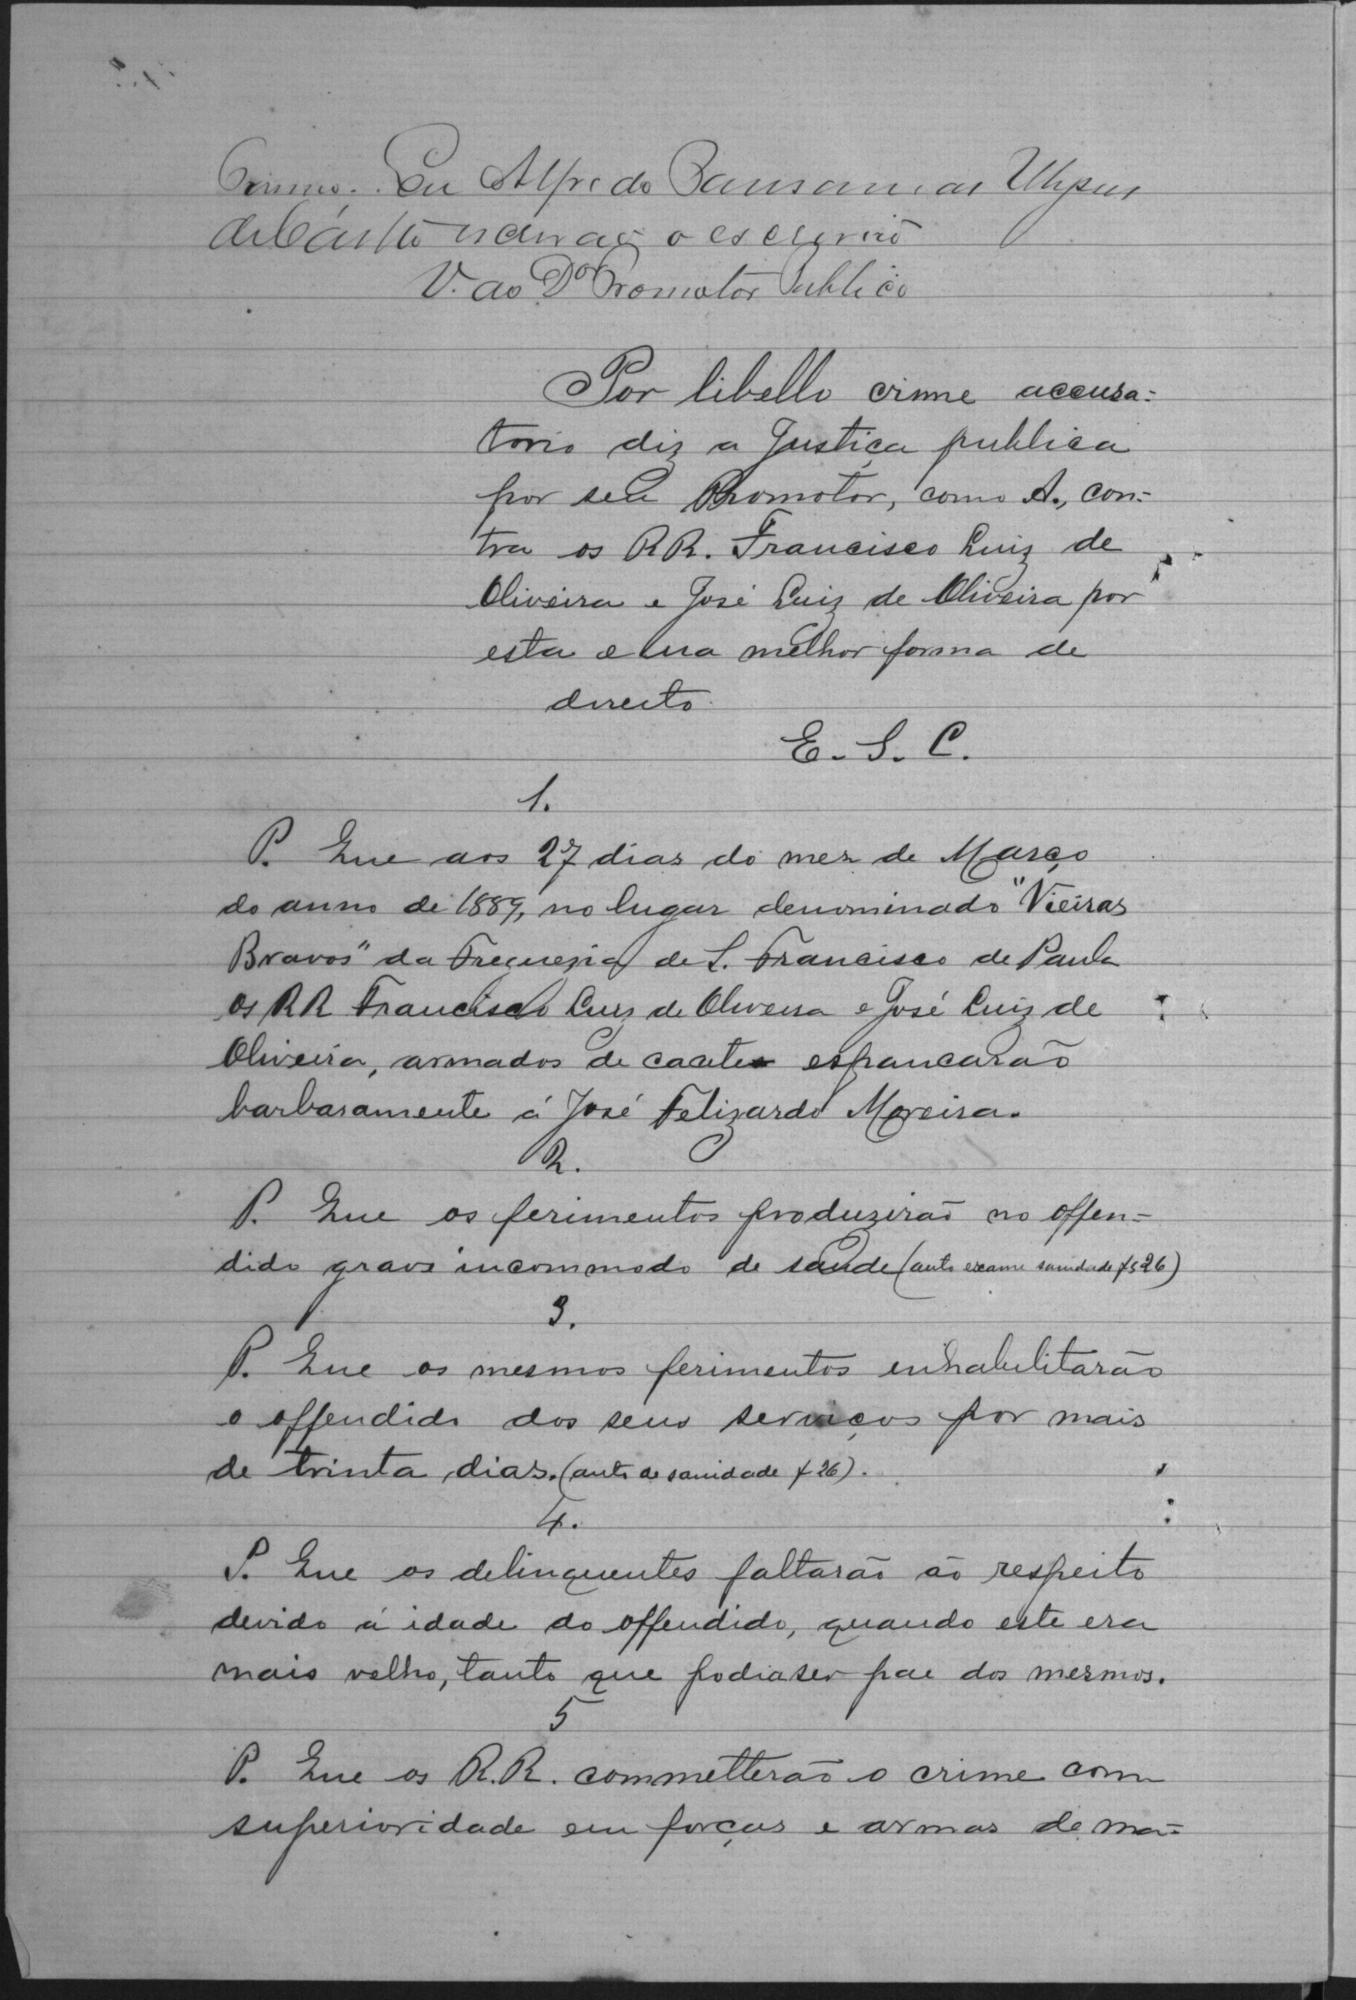 Eu Alfredo Pausanias Ulyses
de Castro escrivão
V. ao Dor Promotor Publico
Por libello crime accusa=
torio diz a Justiça publica
por seu Promotor, como A., con=
tra os RR. Francisco Luiz de
Oliveira e José Luiz de Oliveira por
esta e na melhor forma de
direito
E. S. C.
1.
P. Que aos 27 dias do mez de Março
do anno de 1889, no lugar denominado "Vieiras
Bravos" da Freguezia de S. Francisco de Paula
os RR Francisco Luiz de Oliveira e José Luiz de
Oliveira, armados de cacete espancarão
barbaramente á José Felizardo Moreira.
2.
P. Que os ferimentos produzirão no offen=
dido grave incommodo de saude (auto exame sanidade fs 26)
3.
P. Que os mesmos ferimentos inhabilitarão
o offendido dos seus serviços por mais
de trinta dias. (auto de sanidade f 26).
4.
P. Que os delinquentes faltarão ao respeito
devido á idade do offendido, quando este era
mais velho, tanto que podia ser pae dos mesmos.
5
P. Que os R.R. commetterão o crime com
superioridade em forças e armas de ma=